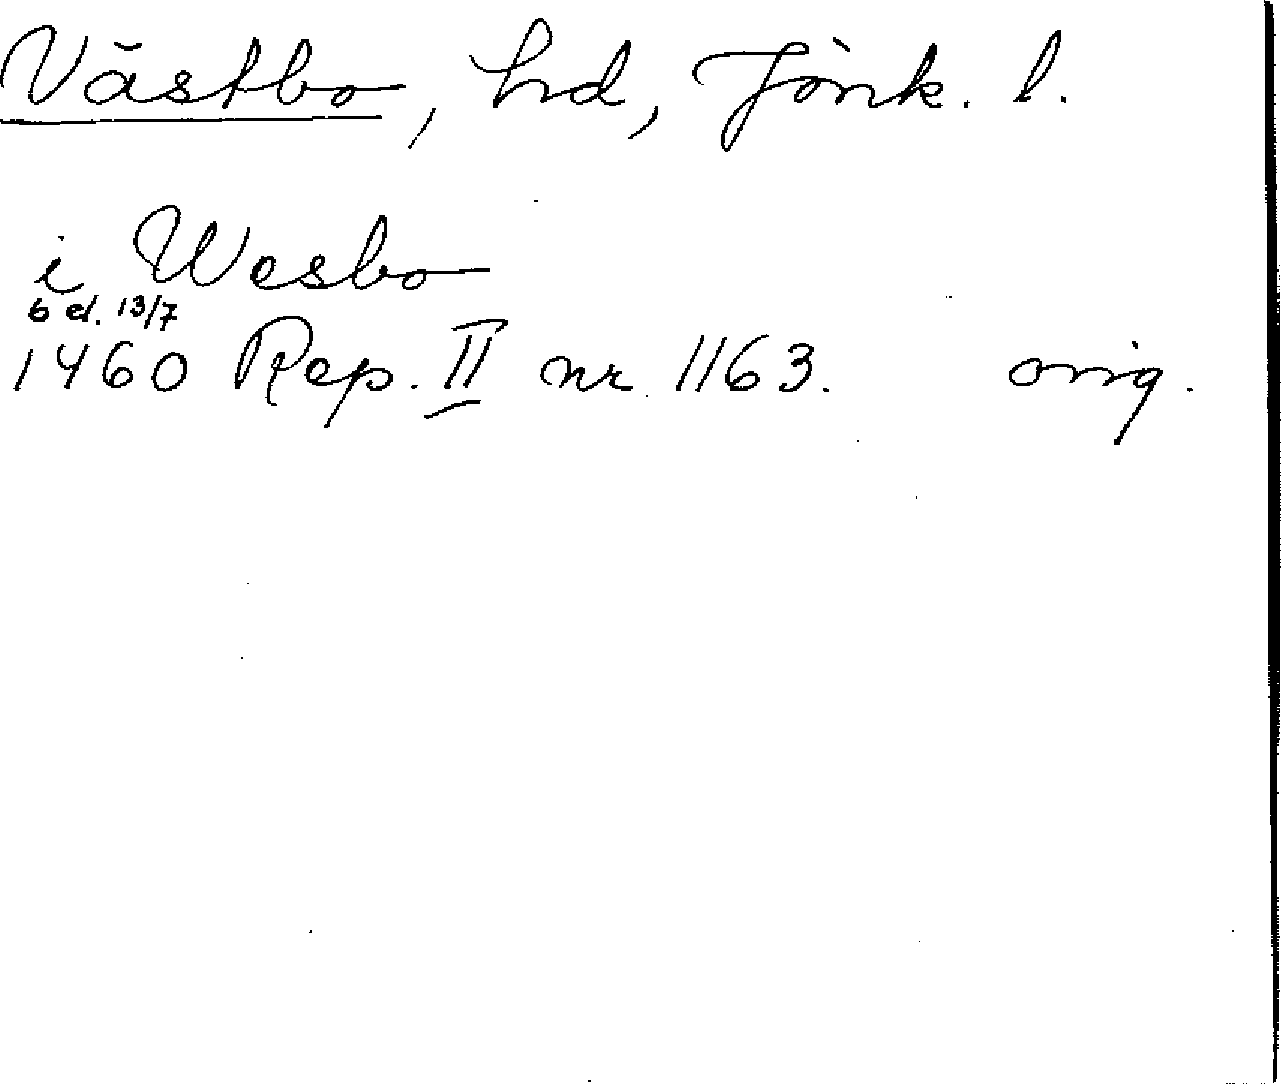 Västbo, hd, Jönk. l.
i Wesbo
6 el. 13/7
1460 Rep. II nr 1163. orig.